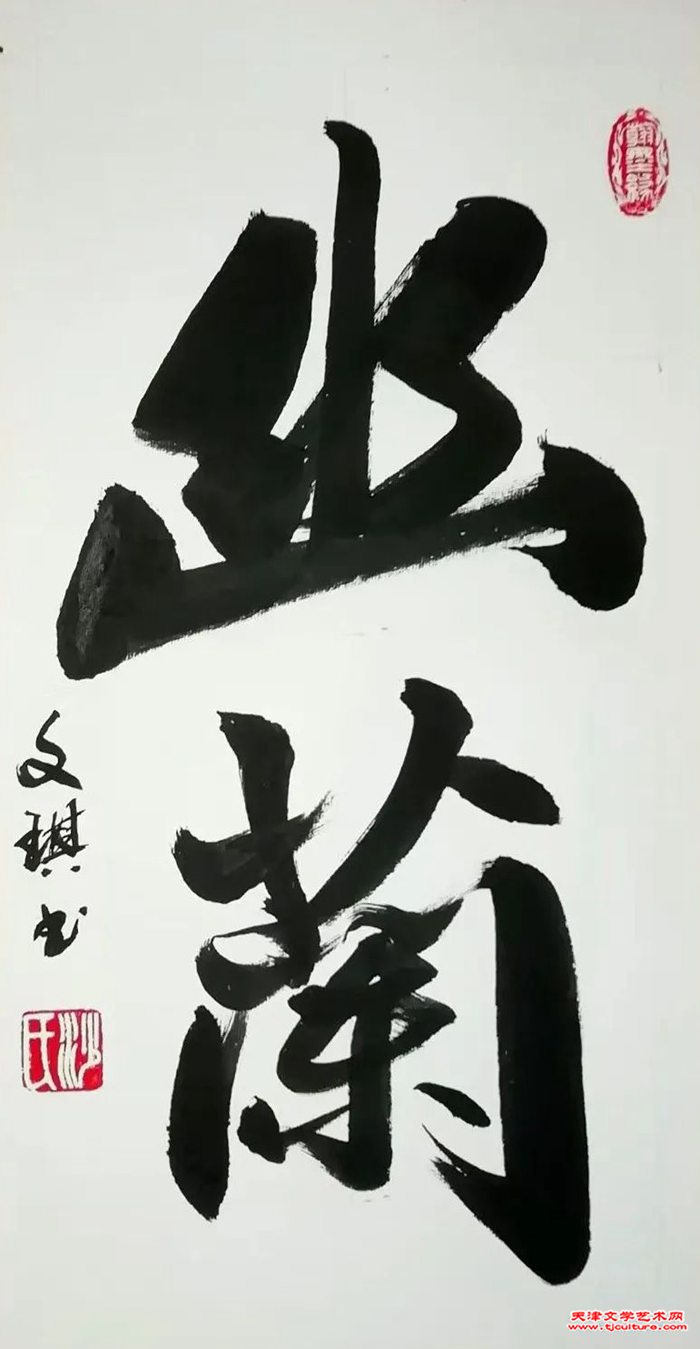 幽蘭
文琪书
沙氏
翰墨緣
天津文学艺术网
www.tjculture.com